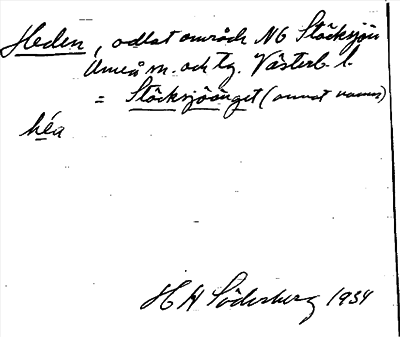 Heden, odlat område NG Stöcksjön
Umeå sn. och tg. Västerb. l.
= Stöcksjöänget (annat namn)
héa
H A Söderberg 1934